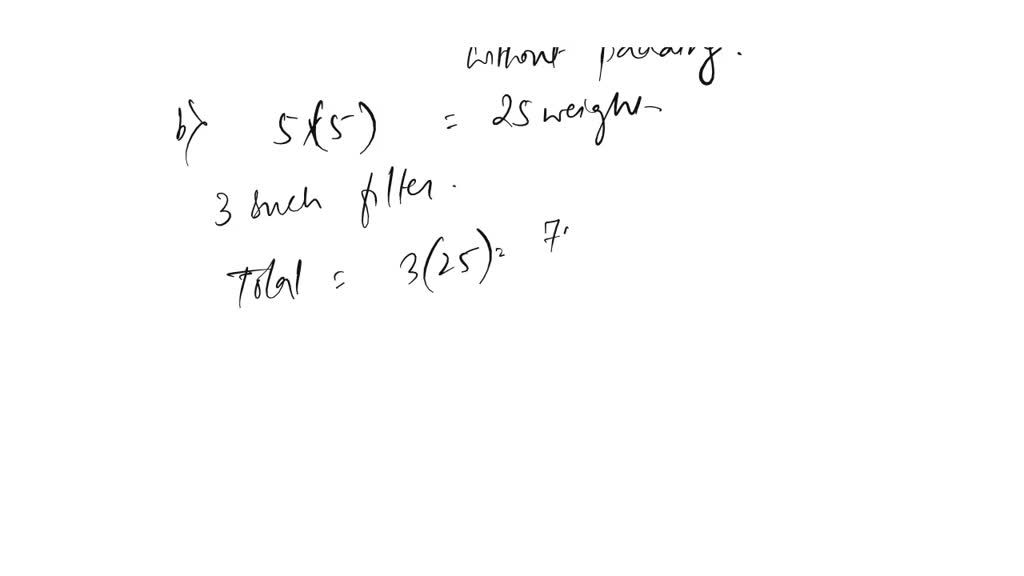 without padding.
b) 5×(5) = 25 weights
3 such filter.
Total = 3(25) = 7